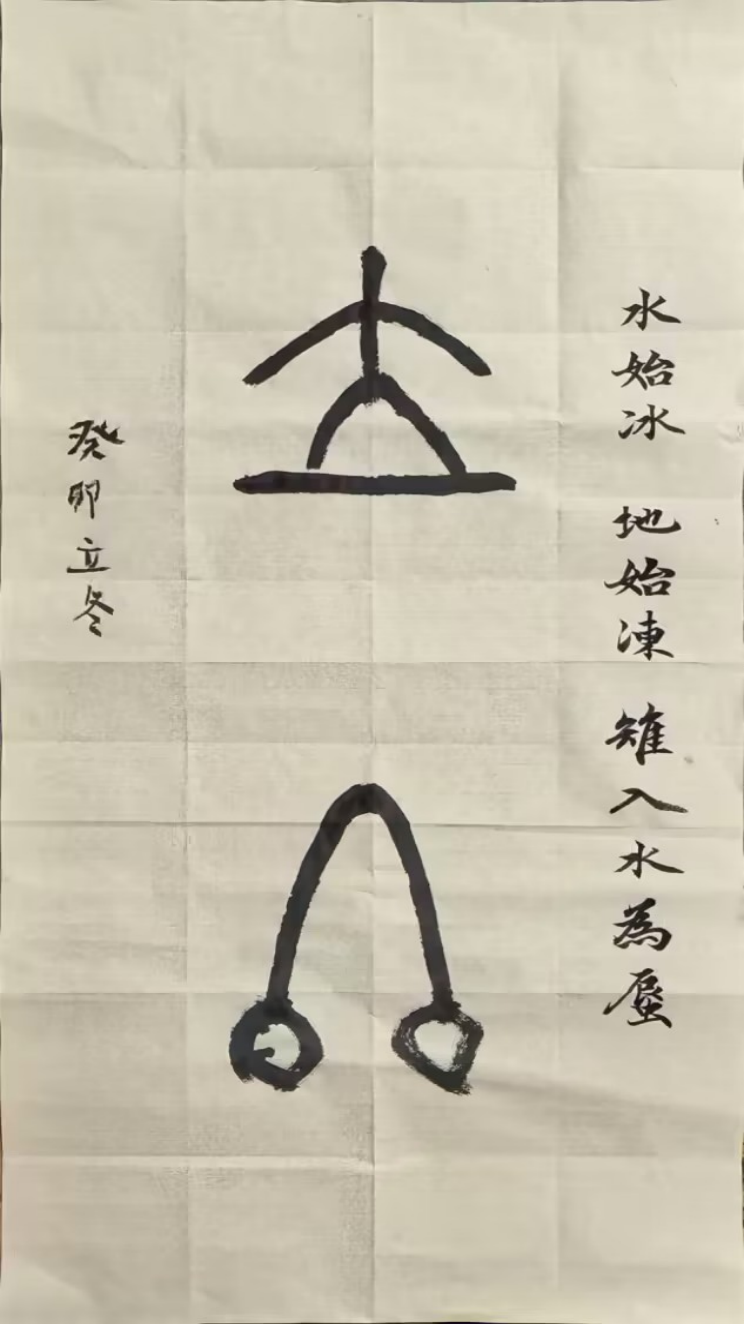 水始冰 地始凍 雉入水為蜃
立冬
癸卯立冬